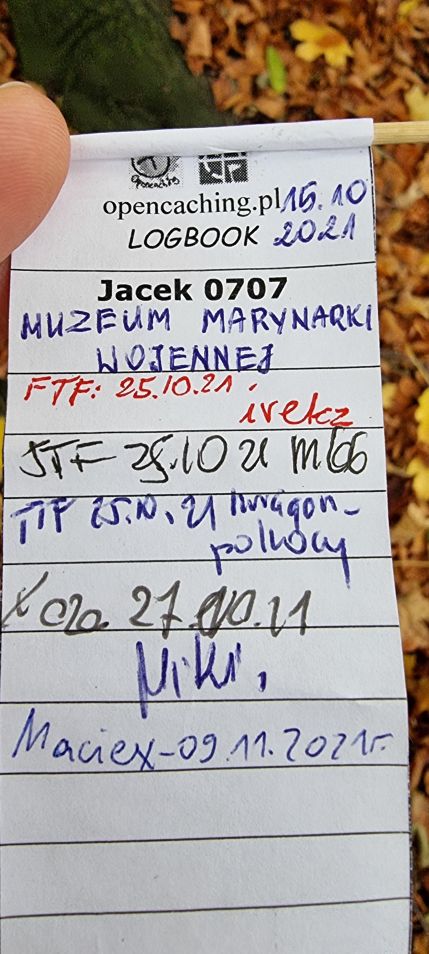 opencaching.pl 15.10
LOGBOOK 2021
Jacek 0707
MUZEUM MARYNARKI
WOJENNEJ
FTF: 25.10.21.
ivetcz
STF 25.10 21
TTF 25.10.21
polnocy
27.10.21
Niki,
Maciex-09.11.2021r.